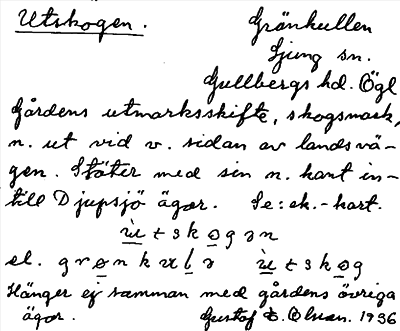 Utskogen. Gränkullen
Ljung sn.
Gullbergs hd. Ögl
Gårdens utmarksskifte, skogsmark,
n. ut vid v. sidan av landsvä-
gen. Stöter med sin n. kant in-
till Djupsjö ägor. Se: ek.-kart.
ù̱t s k o̱ g ə n
el. g r ɵ̱ n k ɯ ḻ ə ù̱t s k o̱ g
Hänger ej samman med gårdens övriga
ägor. Gustaf E. Olsson. 1936